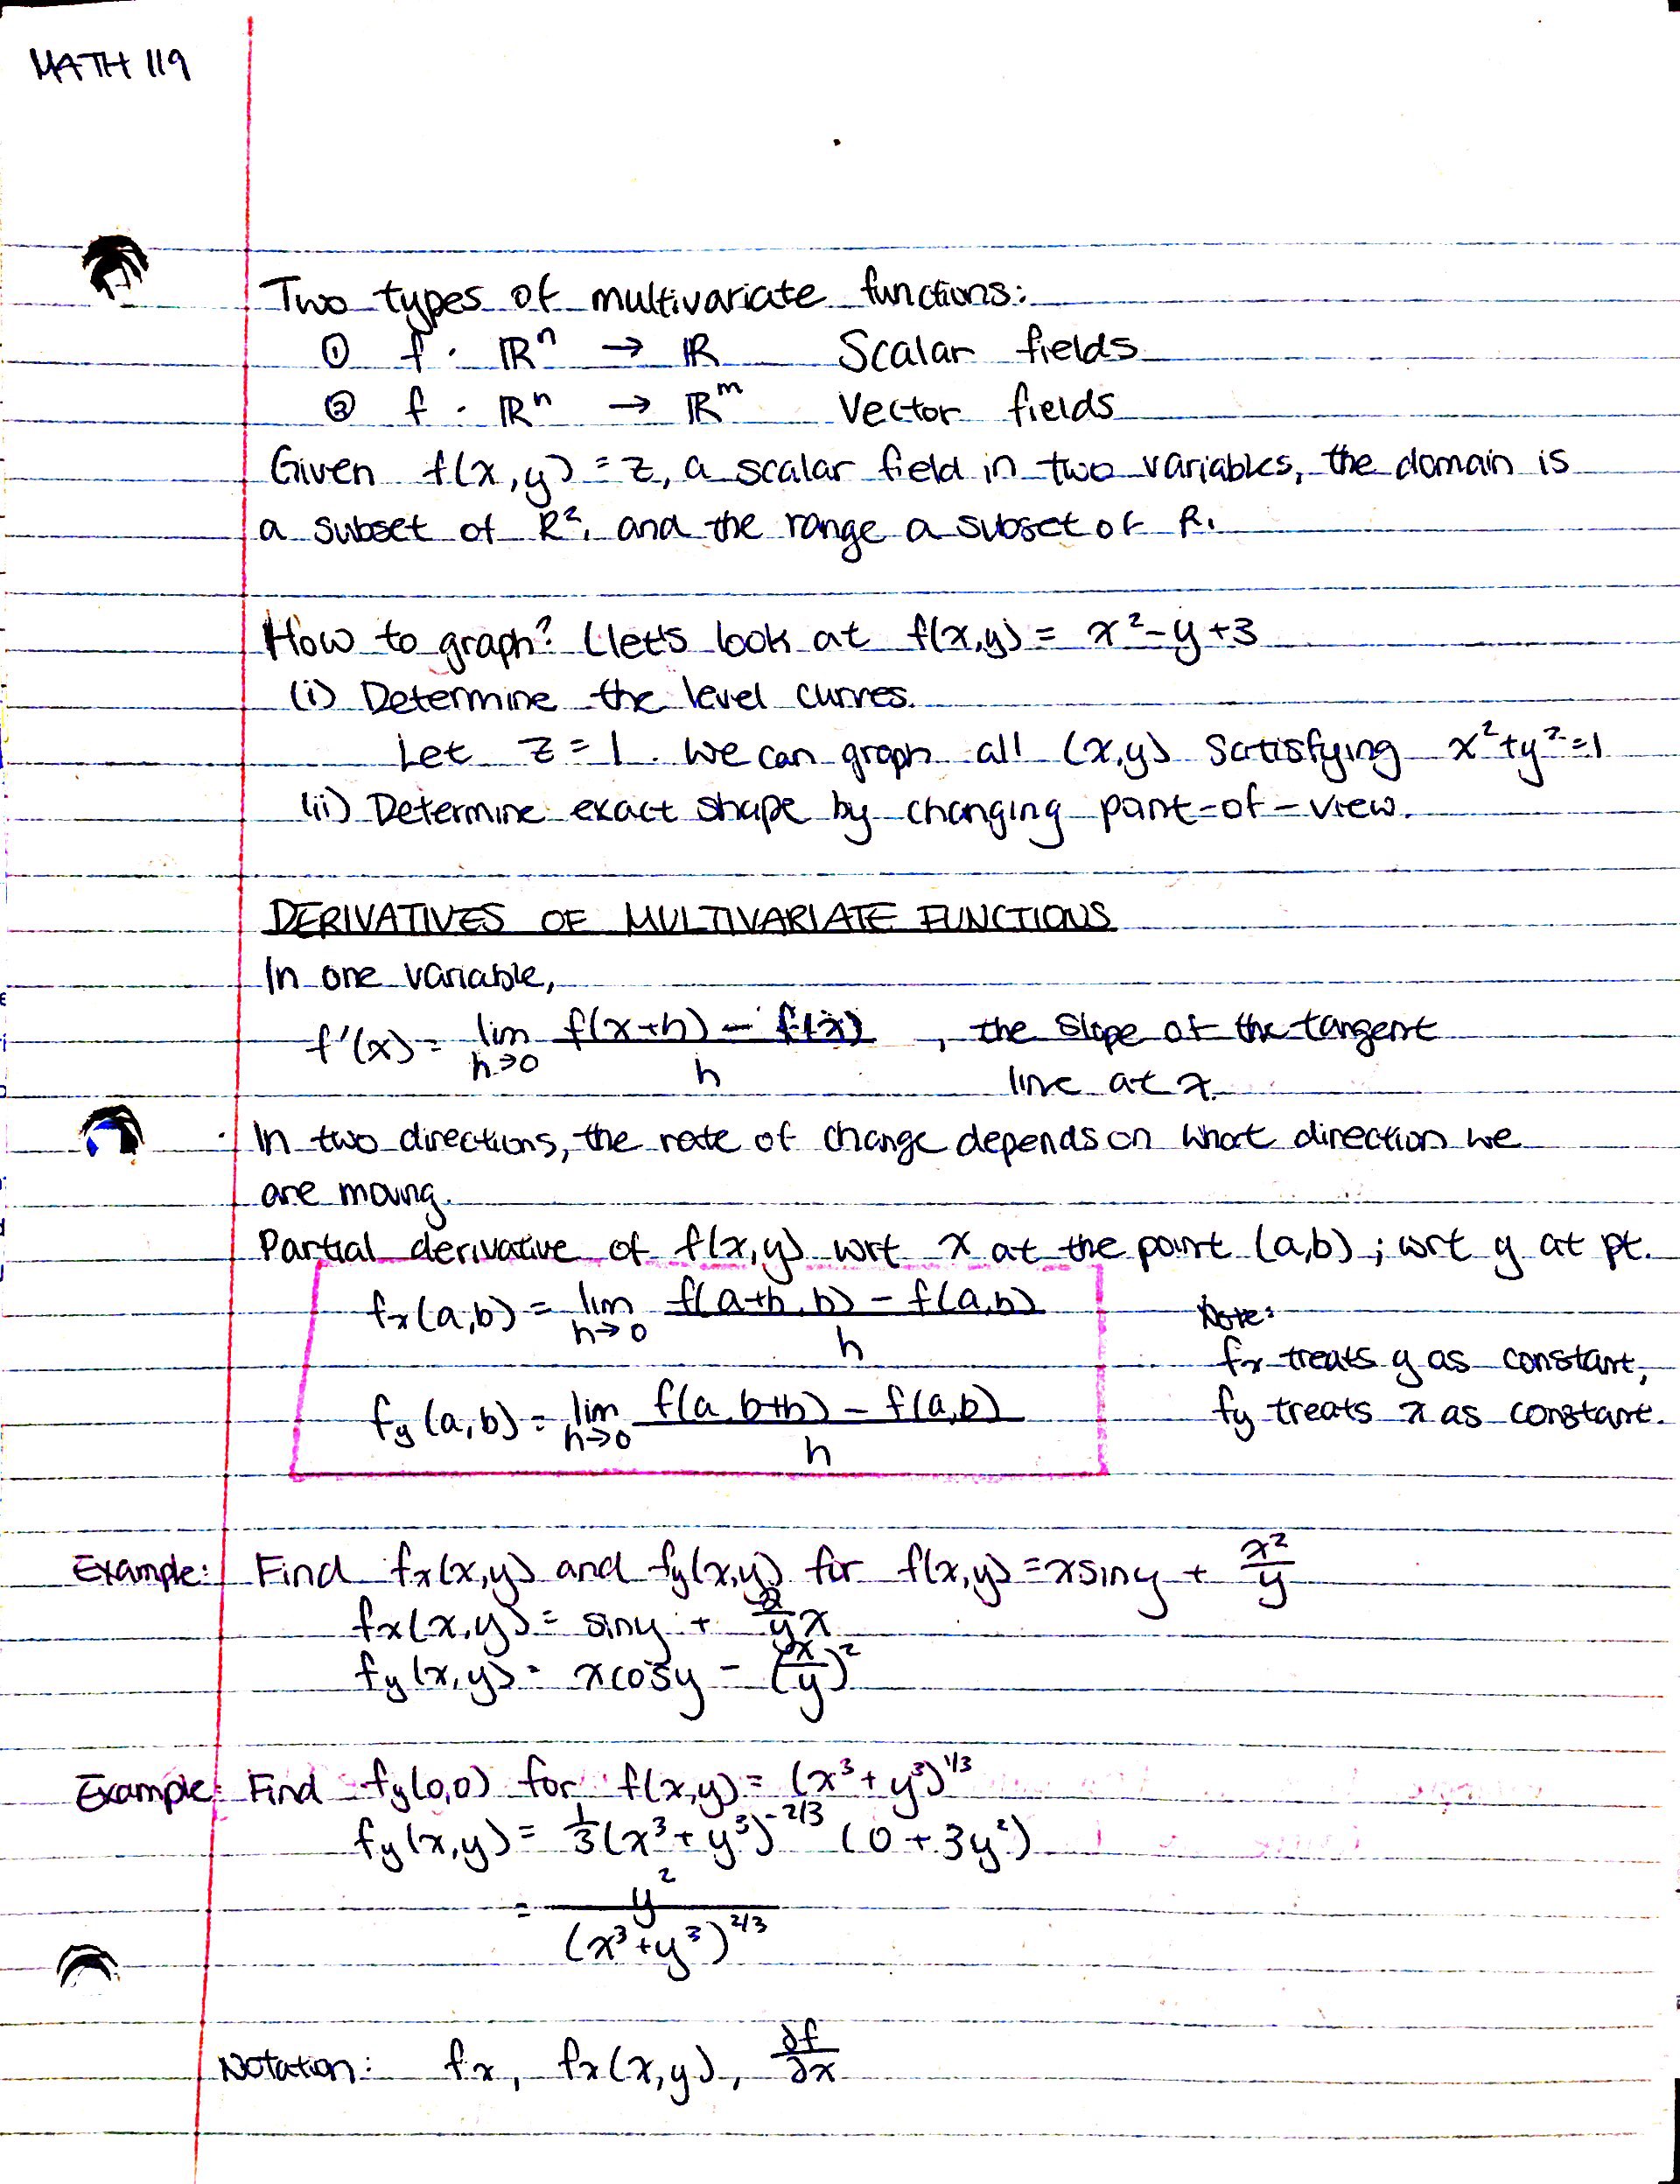 MATH 119
Two types of multivariate functions:
① f : ℝⁿ → ℝ Scalar fields
② f : ℝⁿ → ℝᵐ Vector fields
Given f(x,y) = z, a scalar field in two variables, the domain is
a subset of R², and the range a subset of R.
How to graph? Llet's look at f(x,y) = x² - y + 3
(i) Determine the level curves.
Let z = 1. We can graph all (x,y) satisfying x² + y² = 1
(ii) Determine exact shape by changing point-of-view.
DERIVATIVES OF MULTIVARIATE FUNCTIONS
In one variable,
f'(x) = lim h→0 (f(x+h) - f(x))/h , the slope of the tangent
line at x.
In two directions, the rate of change depends on what direction we
are moving.
Partial derivative of f(x,y) wrt x at the point (a,b) ; wrt y at pt.
fₓ(a,b) = lim h→0 (f(a+h, b) - f(a,b))/h
Note:
fₓ treats y as constant,
f_y (a,b) = lim h→0 (f(a, b+h) - f(a,b))/h
f_y treats x as constant.
Example: Find fₓ(x,y) and f_y(x,y) for f(x,y) = x sin y + x²/y
fₓ(x,y) = sin y + 2/y x
f_y(x,y) = x cos y - (x/y)²
Example: Find f_y(0,0) for f(x,y) = (x³ + y³)^1/3
f_y(x,y) = 1/3 (x³ + y³)^-2/3 (0 + 3y²)
= y²/(x³ + y³)^2/3
Notation: fₓ, fₓ(x,y), ∂f/∂x